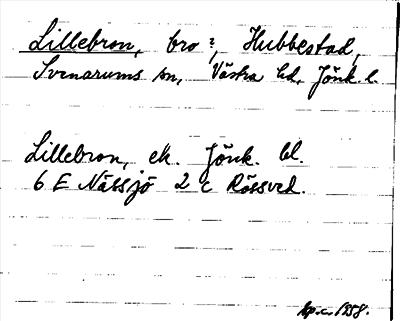 Lillebron, bro?, Hubbestad,
Svenarums sn, Västra hd, Jönk. l.
Lillebron, ek. Jönk. bl.
6 E Nässjö 2 c Rössved.
1958.